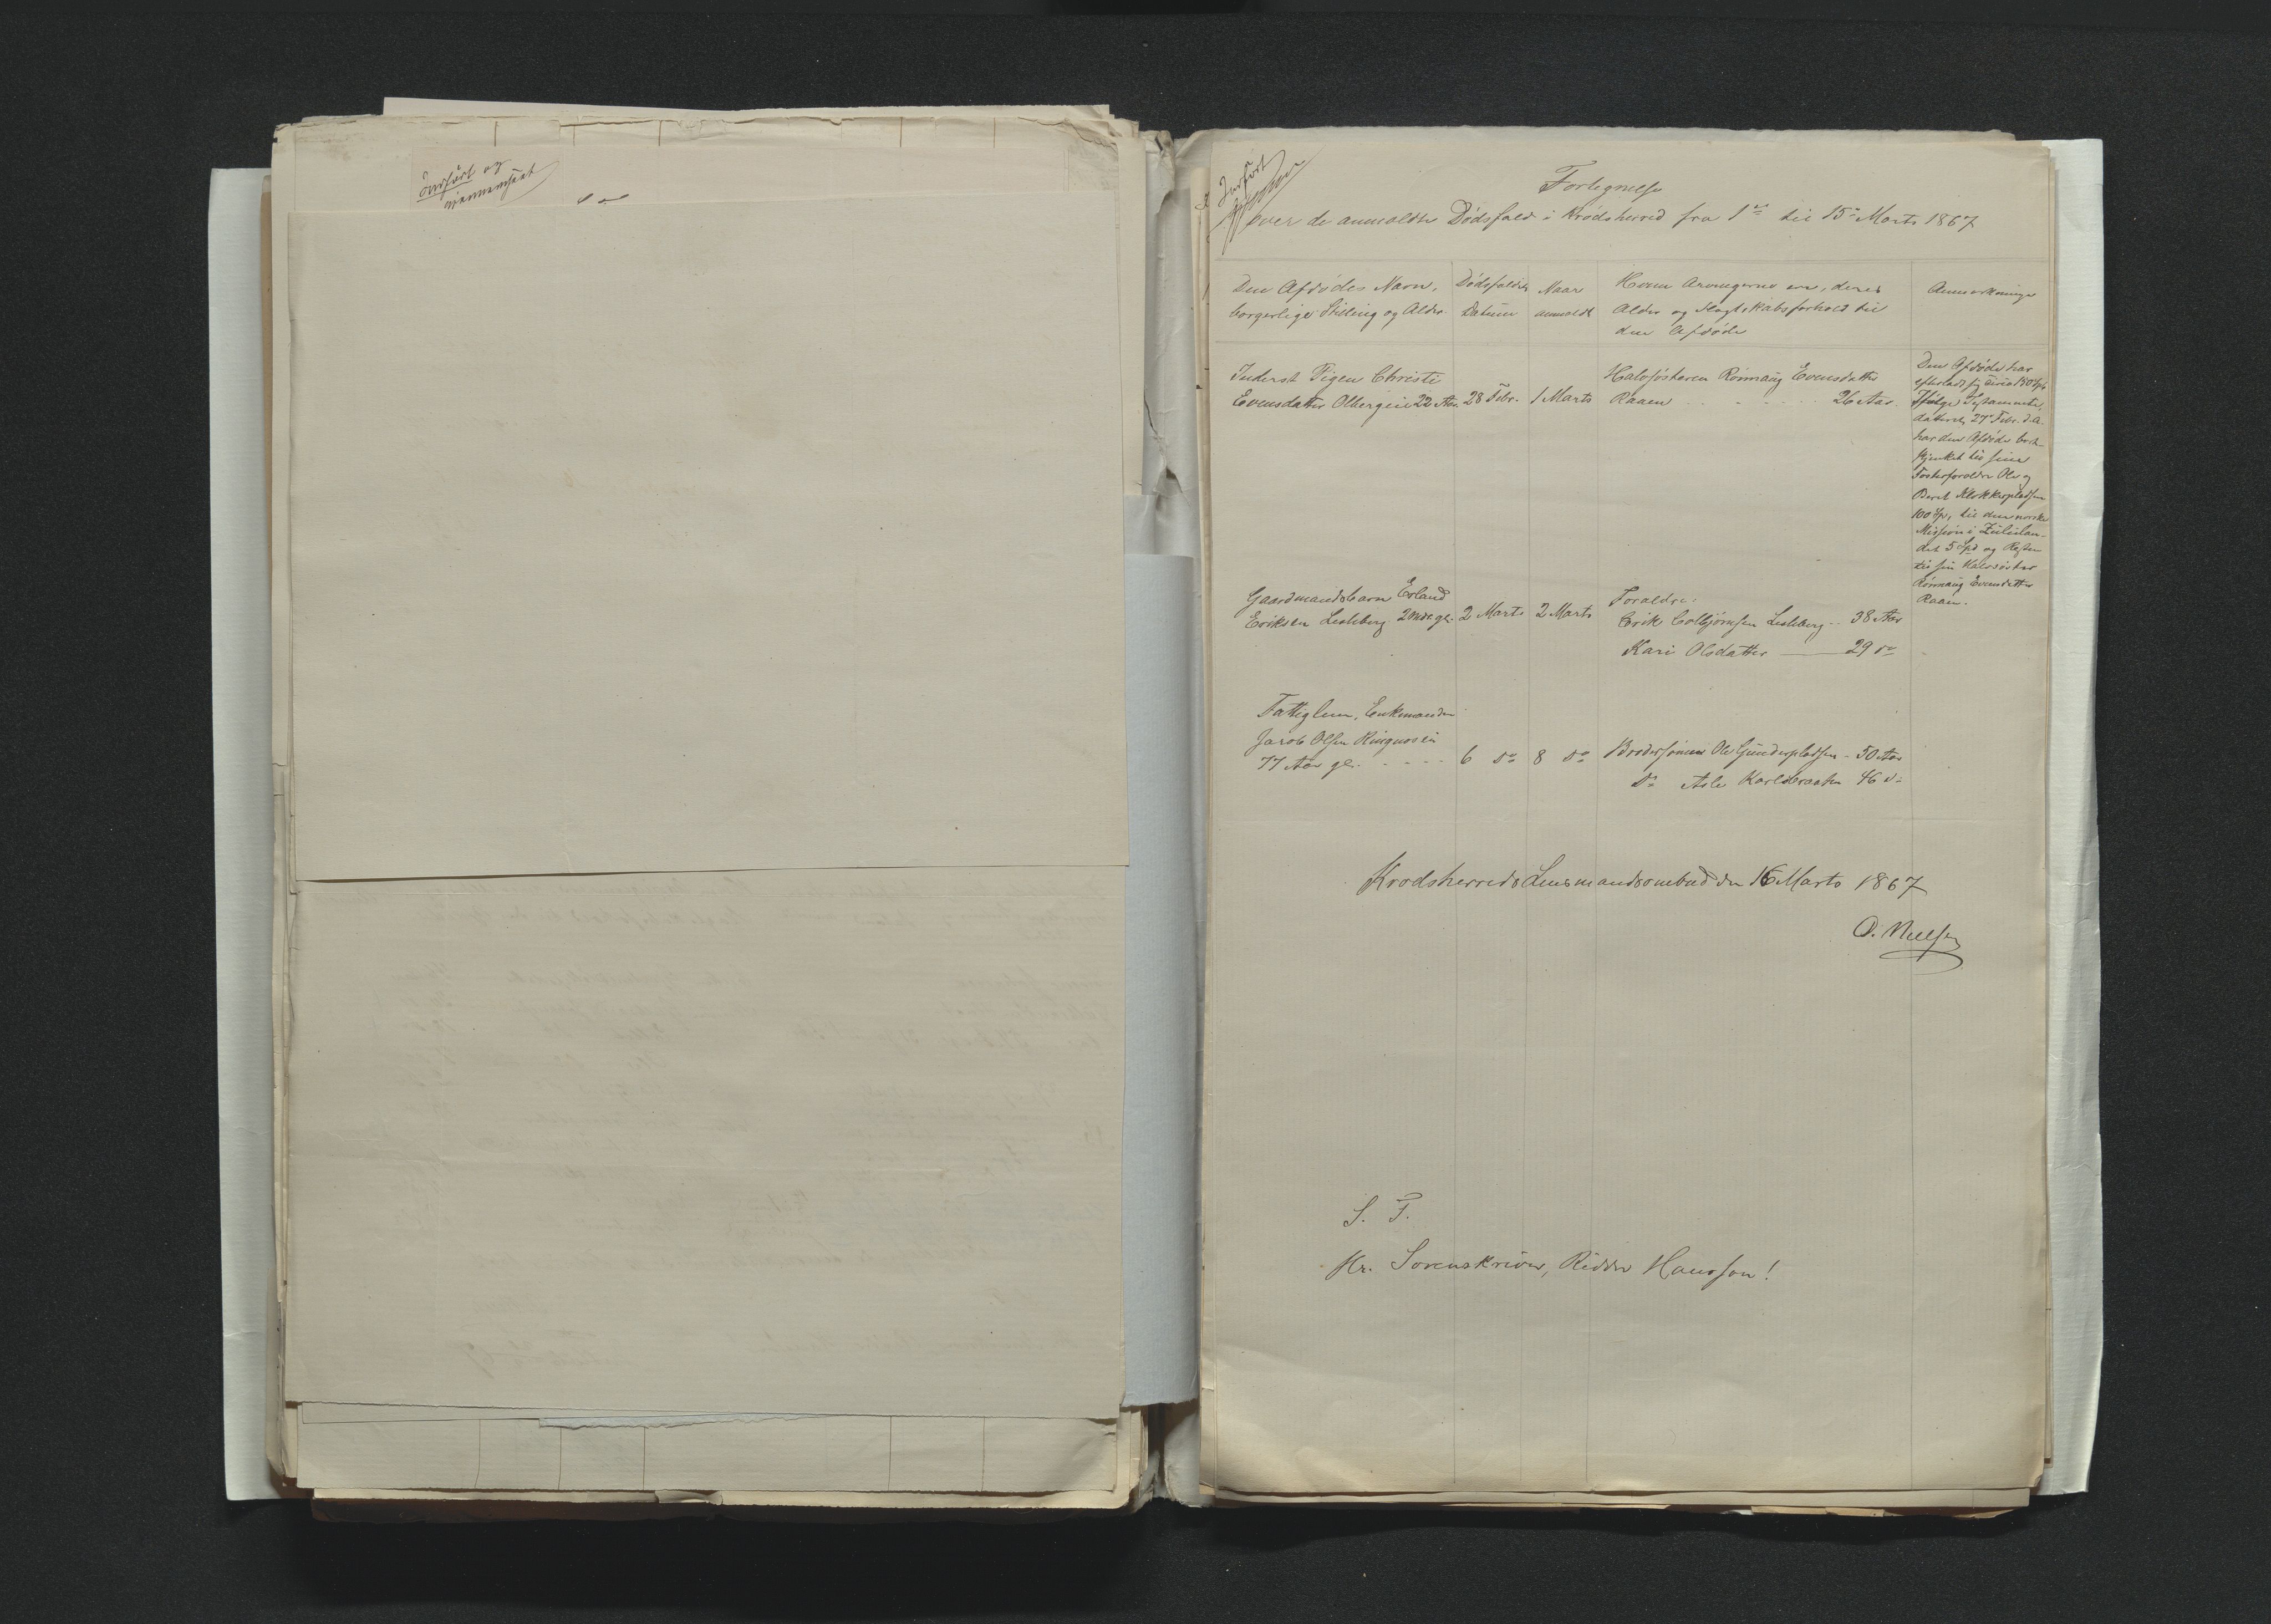 Indført og
Indført
Fortegnelse
over de anmeldte Dødsfald i Krødsherred fra 1ste til 15de Marts 1867
Den Afdødes Navn,
borgerlige Stilling og Alder.
Dødsfaldets
Datum
Naar
anmeldt
Hvem Arvingerne ere, deres
Alder og Slægtskabsforhold til
den Afdøde
Anmærkninger
Inderst Pigen Christi
Evensdatter Olbergeie 22 Aar.
28 Febr.
1 Marts
Halvsøsteren Rønnaug Evensdatter
Raaen - - - - - 26 Aar.
Den Afdøde har
efterladt sig circa 150 Spd.
Ifølge Testamente,
dateret 27de Febr. d.A.
har den Afdøde bort-
skjenket til sine
Fosterforældre Ole og
Berit Klokkerpladsen
100 Spd, til den norske
Mission i Zululan-
det 5 Spd og Resten
til sin Halvsøster
Rønnaug Evensdatter
Raaen.
Gaardmandsbarn Erland
Eriksen Lesteberg 2 Mdr. gl.
2 Marts
2 Marts
Forældre:
Erik Colbjørnsen Lesteberg - - 38 Aar
Kari Olsdatter — 29 do
Fattiglem, Enkemanden
Jacob Olsen Ringneseie
77 Aar gl. - - - -
6 do
8 do
Brodersønnen Ole Gunderpladsen - 50 Aar
do Asle Karlsbraaten 46 do
Krødsherreds Lensmandsombud den 16 Marts 1867
O. Nielsen
S. T.
Hr. Sorenskriver, Ridder Hansson!